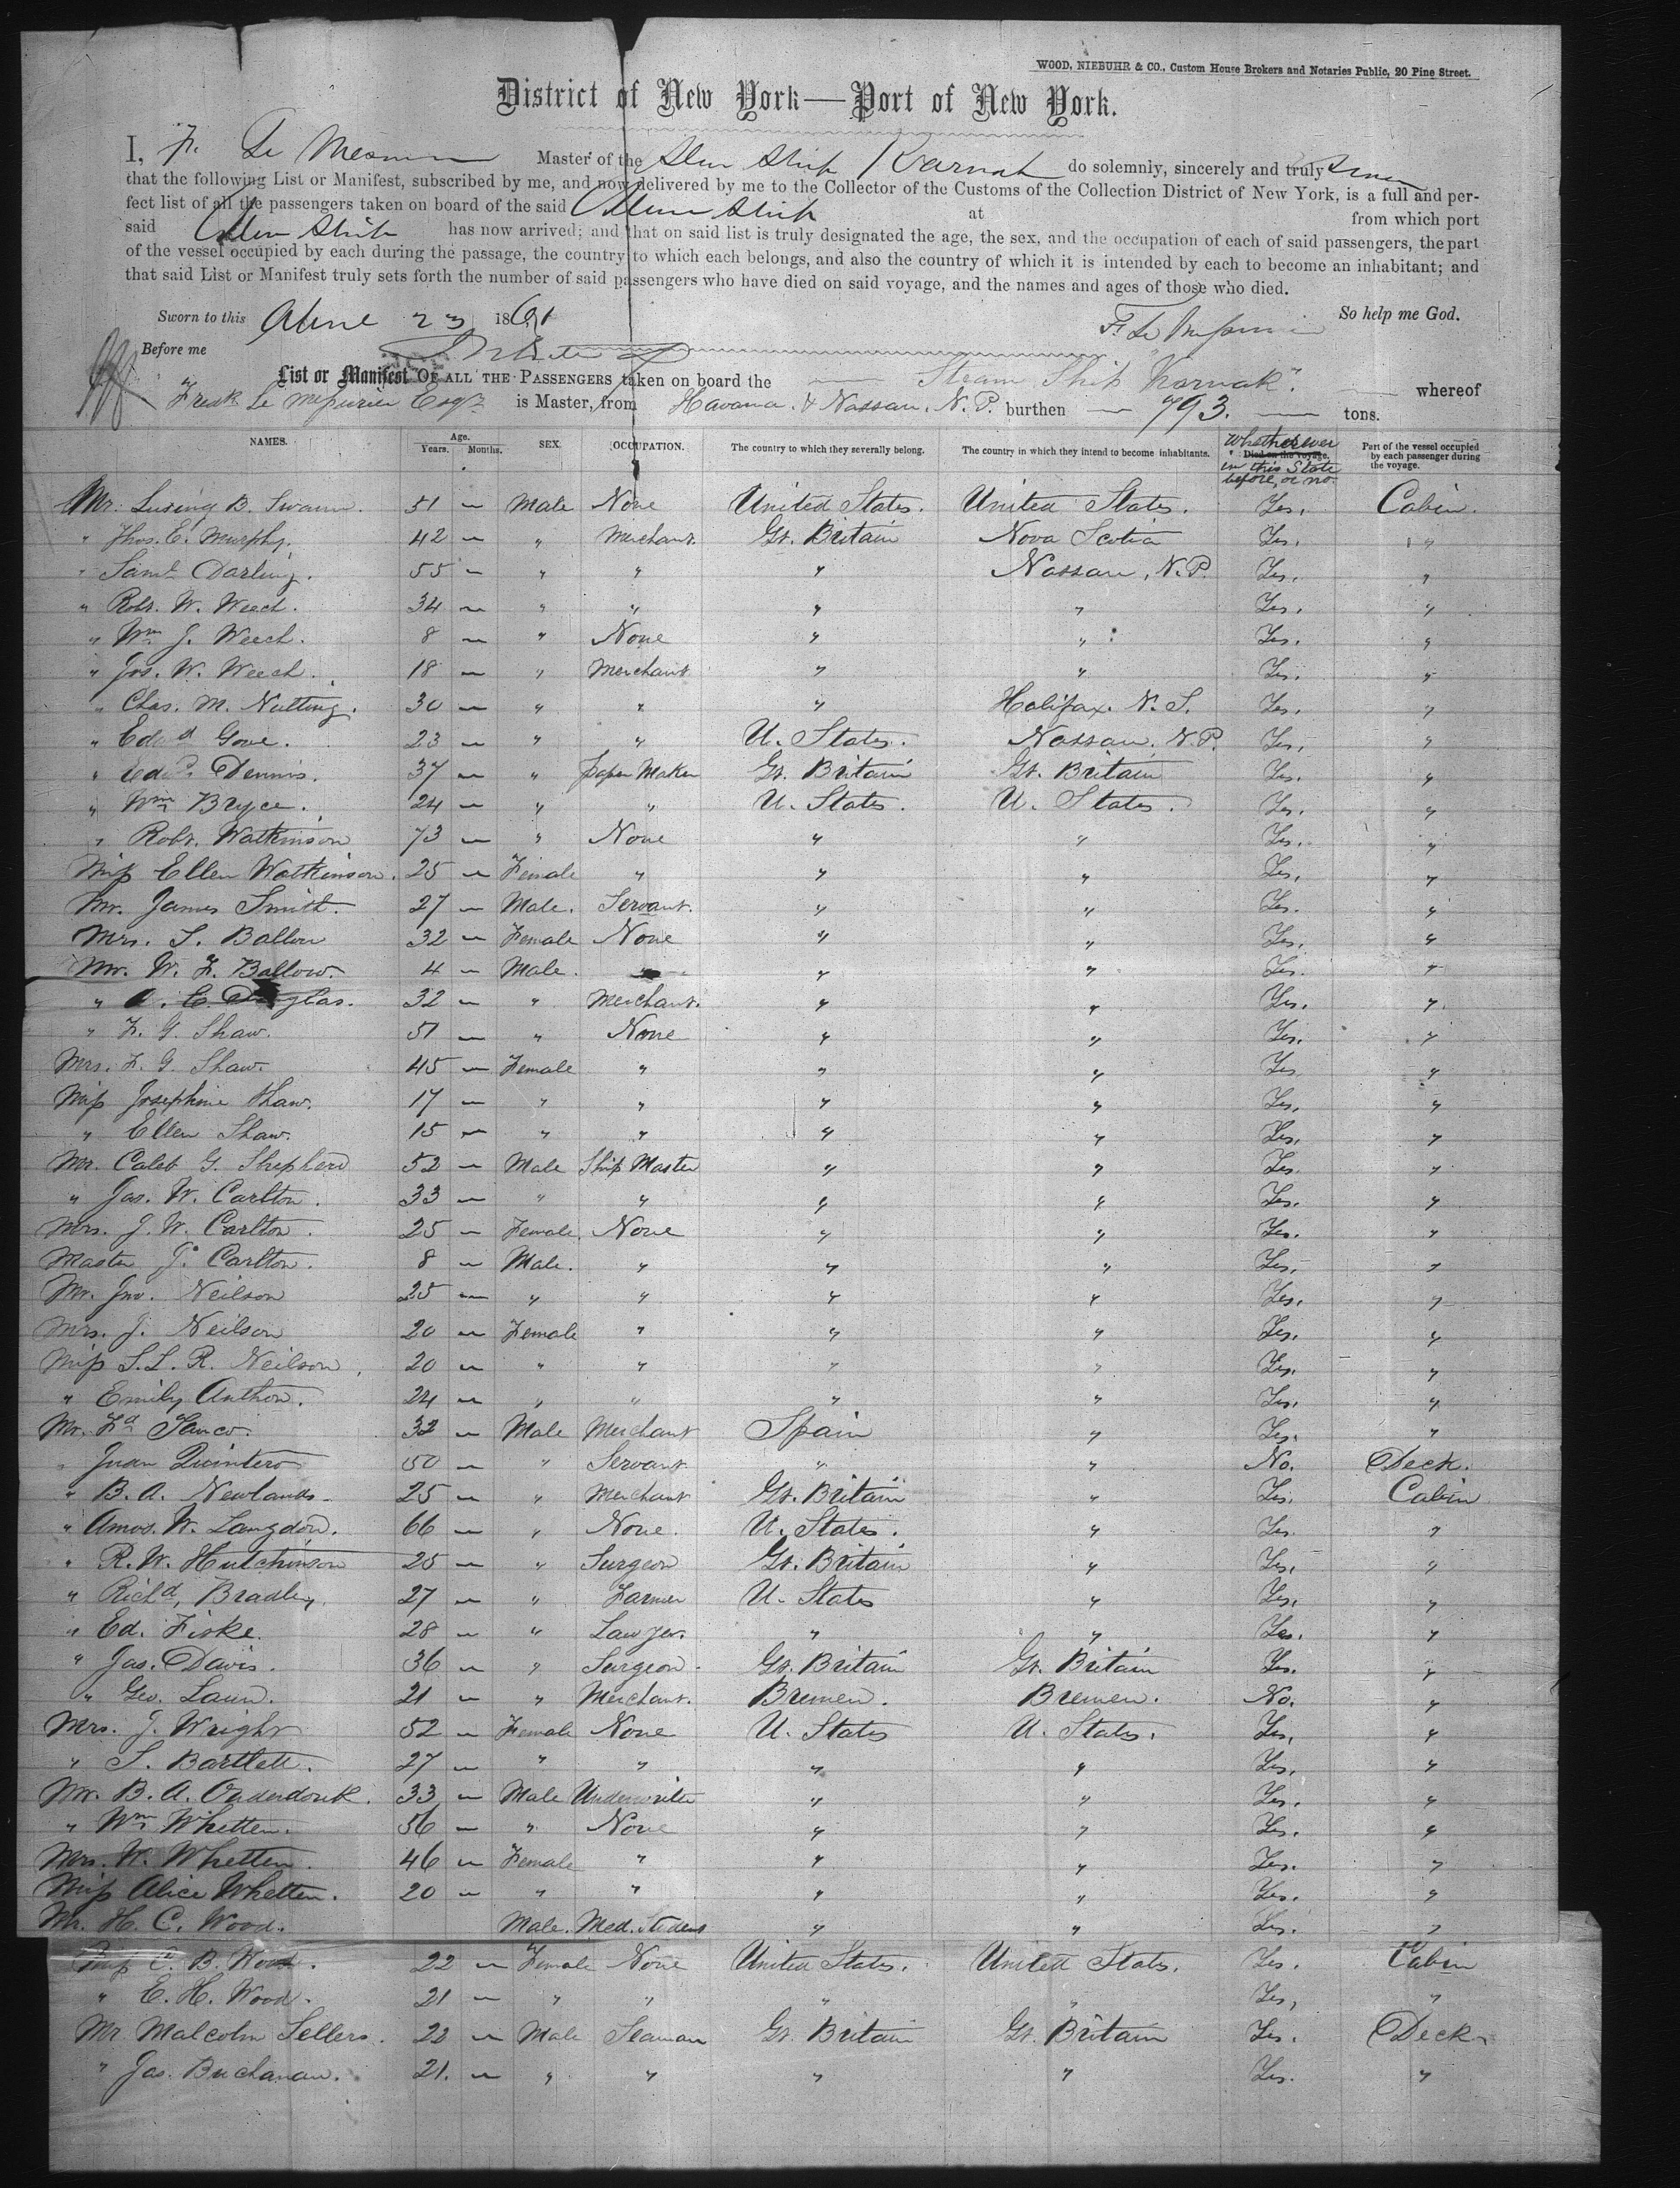 WOOD, NIEBUHR & CO., Custom House Brokers and Notaries Public, 20 Pine Street.
District of New York—Port of New York.
I, F. Le Master of the Stm Ship Karnak do solemnly, sincerely and truly
that the following List or Manifest, subscribed by me, and now delivered by me to the Collector of the Customs of the Collection District of New York, is a full and per-
fect list of all the passengers taken on board of the said Ship at from which port
said Ship has now arrived; and that on said list is truly designated the age, the sex, and the occupation of each of said passengers, the part
of the vessel occupied by each during the passage, the country to which each belongs, and also the country of which it is intended by each to become an inhabitant; and
that said List or Manifest truly sets forth the number of said passengers who have died on said voyage, and the names and ages of those who died.
Sworn to this 23 1861 So help me God.
Before me F. Le
List or Manifest OF ALL THE PASSENGERS taken on board the Steam Ship "Karnak". whereof
Fredk Le Mesurier Esqr is Master, from Havana. & Nassau. N. P. burthen 793. tons.
NAMES. Age. Years. Months. SEX. OCCUPATION. The country to which they severally belong. The country in which they intend to become inhabitants. Whether ever Died on the voyage. in this State before, or no. Part of the vessel occupied by each passenger during the voyage.
Mr. B. Swann. 51 — Male None United States. United States. Yes. Cabin.
" Thos. E. Murphy. 42 — " Merchant. Gt. Britain Nova Scotia Yes. "
" Saml Darling. 55 — " " " Nassau, N.P. Yes. "
" Robt. W. Weech. 34 — " " " " Yes. "
" Wm J. Weech. 8 — " None " " Yes. "
" Jos. W. Weech. 18 — " Merchant " " Yes. "
" Chas. M. Nutting. 30 — " " " Halifax. N. S. Yes. "
" Edwd Gove. 23 — " " U. States. Nassau. N.P. Yes. "
" Edwd. Dennis. 37 — " Paper Maker Gt. Britain Gt. Britain Yes. "
" Wm Bryce. 24 — " " U. States. U. States. Yes. "
" Robt. Watkinson 73 — " None " " Yes. "
Miss Ellen Watkinson. 25 — Female " " " Yes. "
Mr. James Smith. 27 — Male. Servant. " " Yes. "
Mrs. S. Ballou 32 — Female None " " Yes. "
Mr. W. F. Ballow. 4 — Male. " " " Yes. "
" A. C. Douglas. 32 — " Merchant. " " Yes. "
" F. G. Shaw. 51 — " None " " Yes. "
Mrs. F. G. Shaw. 45 — Female " " " Yes "
Miss Josephine Shaw. 17 — " " " " Yes. "
" Ellen Shaw. 15 — " " " " Yes. "
Mr. Caleb G. Shepherd 52 — Male Ship Master " " Yes. "
" Jas. W. Carlton. 33 — " " " " Yes. "
Mrs. J. W. Carlton. 25 — Female. None " " Yes. "
Master J. Carlton. 8 — Male. " " " Yes. "
Mr. Jno. Neilson 25 — " " " " Yes. "
Mrs. J. Neilson 20 — Female " " " Yes. "
Miss S. L. R. Neilson, 20 — " " " " Yes. "
" Emily Anthon. 24 — " " " " Yes. "
Mr. Fd Tanco. 32 — Male Merchant Spain " Yes. "
" Juan Quintero 50 — " Servant " " No. Deck.
" B. A. Newlands. 25 — " Merchant Gt. Britain " Yes. Cabin
" Amos. W. Langdon. 66 — " None. U. States. " Yes. "
" R. W. Hutchinson 25 — " Surgeon Gt. Britain " Yes. "
" Richd. Bradley. 27 — " Farmer U. States " Yes. "
" Ed. Fiske. 28 — " Lawyer. " " Yes. "
" Jas. Davis. 36 — " Surgeon. Gt. Britain Gt. Britain Yes. "
" Geo. Laun. 21 — " Merchant. Bremen. Bremen. No. "
Mrs. J. Wright 52 — Female None U. States U. States. Yes. "
" S. Bartlett. 27 — " " " " Yes. "
Mr. B. A. Onderdonk. 33 — Male Underwriter " " Yes. "
" Wm Whetten. 56 — " None " " Yes. "
Mrs. W. Whetten. 46 — Female " " " Yes. "
Miss Alice Whetten. 20 — " " " " Yes. "
Mr. H. C. Wood. Male. Med. Student " " Yes. "
Miss C. B. Wood. 22 — Female None United States. United States. Yes. Cabin
" E. H. Wood. 21 — " " " " Yes, "
Mr Malcolm Sellers. 22 — Male Seaman Gt. Britain Gt. Britain Yes. Deck
" Jas. Buchanan. 21. — " " " " Yes. "